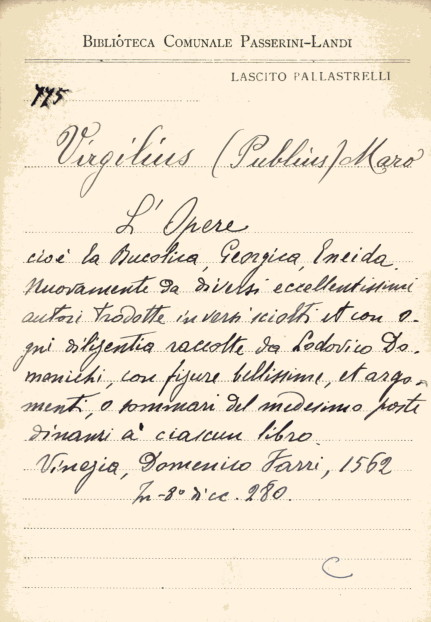 BIBLIOTECA COMUNALE PASSERINI-LANDI
LASCITO PALLASTRELLI
775
Virgilius (Publius) Maro
L' Opere
cioè la Bucolica, Georgica, Eneida.
Nuovamente da diversi eccellentissimi
autori tradotte in versi sciolti et con o-
gni diligentia raccolte da Lodovico Do-
menichi, con figure bellissime, et argo-
menti, o sommari del medesimo poste
dinanzi à ciascun libro.
Vinegia, Domenico Farri, 1562
In-8° di cc. 280.
C